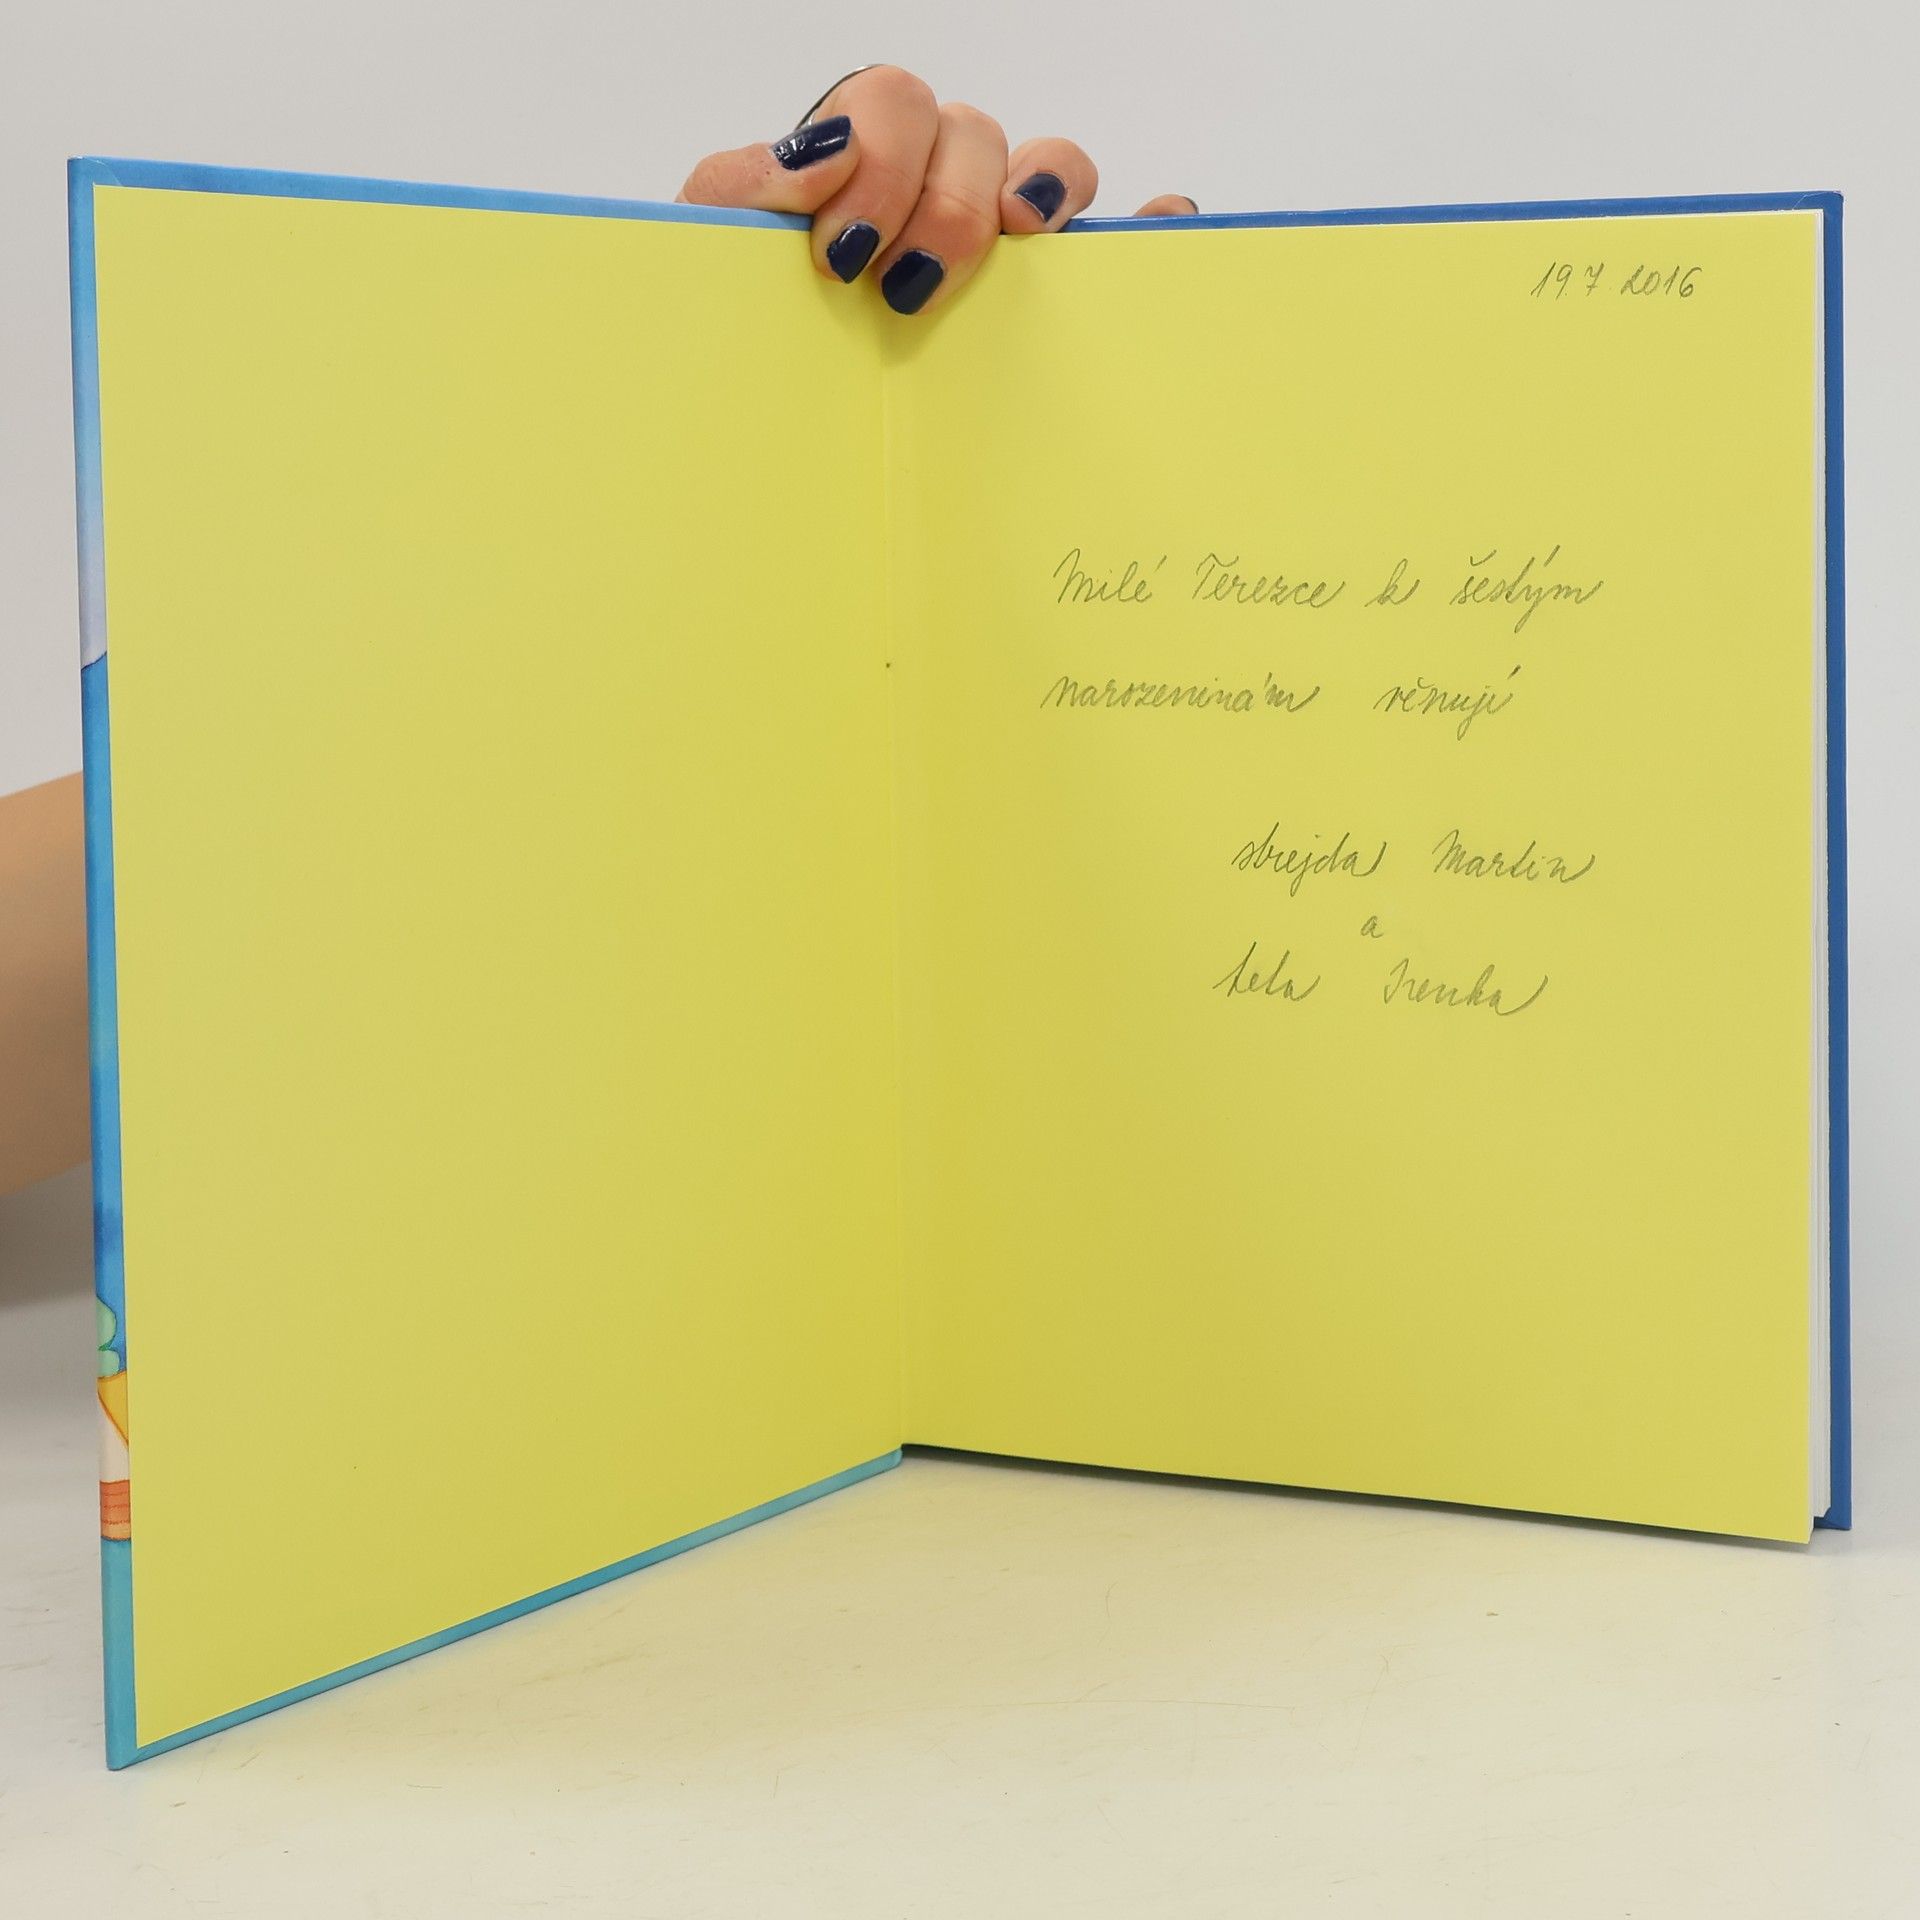 19.7.2016
Milé Terezce k šestým
narozeninám věnují
strejda Martin
a
teta Irenka